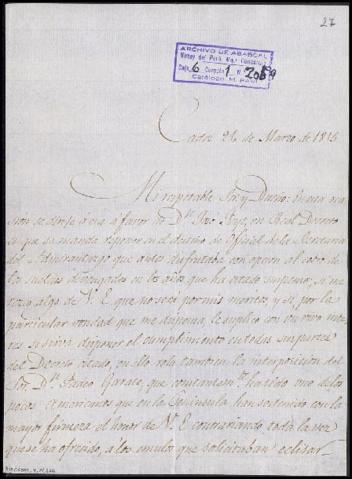 27
ARCHIVO DE ABASCAL
Virrey del Perú
Caja 6 Carpeta 1 n.º
Catálogo M. PAU
Cadiz 26 de Marzo de 1815
Mi respetable Sor y Dueño: buena oca
sion se dirije à esa a favor de Dn. Real Decreto
en que se manda reponer en el destino de Oficial de la Secretaria
del Almirantazgo que antes disfrutaba con opcion al cobro de
los sueldos debengados en los años que ha estado suspenso, si me
rezco algo de V. E. que no será por mis meritos, y si por la
particular vontad que me dispensa, le suplico con vivo inte
res se sirva disponer el cumplimiento en todas sus partes
del Decreto citado, en ello rola tambien la interposicion del
Sor. Dn. Pedro Garate, que constantemte. ha sido uno de los
pocos Americanos que en la península han sostenido con la
mayor firmeza el honor de V. E. contrariando toda la voz
que se ha ofrecido, à los emulos que solicitaban eclisar